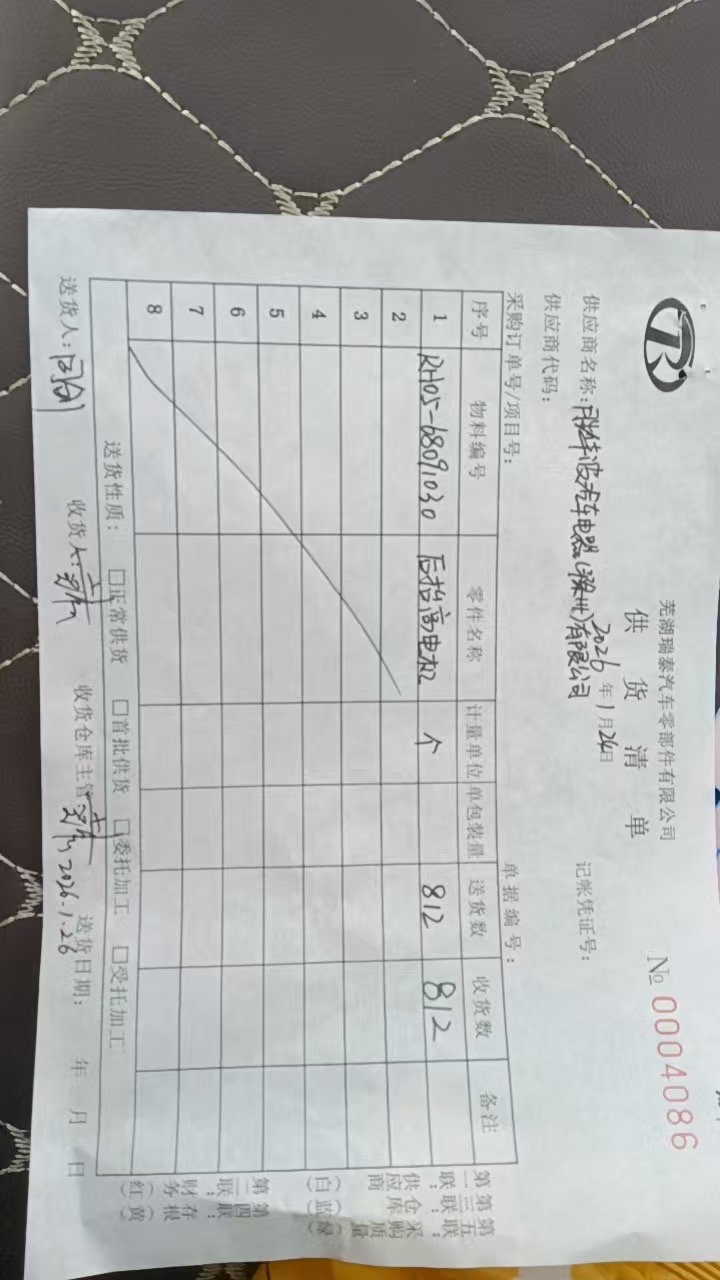 芜湖瑞泰汽车零部件有限公司
供货清单
№ 0004086
2026年1月26日
记帐凭证号：
供应商名称：汽车电器（）有限公司
供应商代码：
采购订单号/项目号：
单据编号：
序号 物料编号 零件名称 计量单位 单包装量 送货数 收货数 备注
1 RH05-68091030 后抬高电机 个 812 812
2
3
4
5
6
7
8
送货性质： □正常供货 □首批供货 □委托加工 □受托加工
送货人：
收货人：
收货仓库主管： 2026.1.26
送货日期： 年 月 日
第一联：供应商（白）
第二联：财务（红）
第三联：仓库（蓝）
第四联：存根（黄）
第五联：采购（绿）
质量